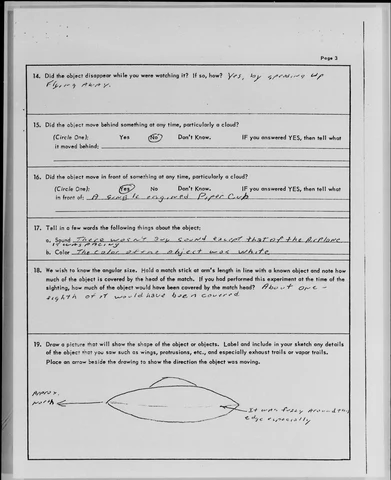 Page 3
14. Did the object disappear while you were watching it? If so, how? Yes, by speeding up
flying away.
15. Did the object move behind something at any time, particularly a cloud?
(Circle One): Yes No Don't Know. IF you answered YES, then tell what
it moved behind:
16. Did the object move in front of something at any time, particularly a cloud?
(Circle One): Yes No Don't Know. IF you answered YES, then tell what
in front of: A single engined Piper Cub
17. Tell in a few words the following things about the object:
a. Sound There wasn't any sound except that of the airplane
it was pacing
b. Color The color of the object was white
18. We wish to know the angular size. Hold a match stick at arm's length in line with a known object and note how
much of the object is covered by the head of the match. If you had performed this experiment at the time of the
sighting, how much of the object would have been covered by the match head? About one-
eighth of it would have been covered
19. Draw a picture that will show the shape of the object or objects. Label and include in your sketch any details
of the object that you saw such as wings, protrusions, etc., and especially exhaust trails or vapor trails.
Place an arrow beside the drawing to show the direction the object was moving.
North
It was fuzzy around the
edge especially